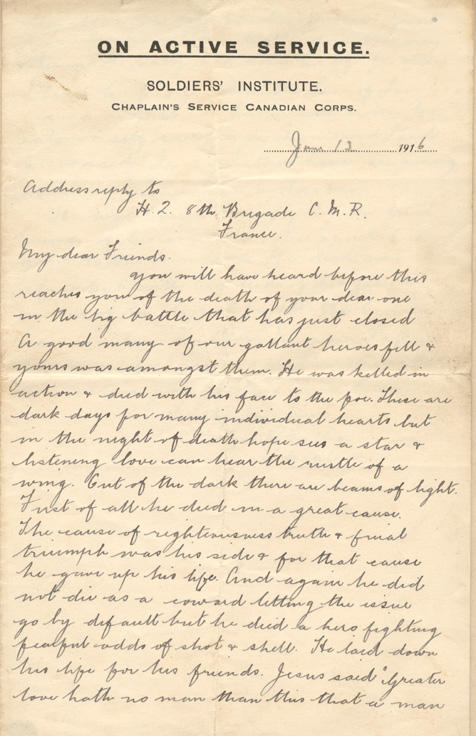 ON ACTIVE SERVICE.
SOLDIERS' INSTITUTE.
CHAPLAIN'S SERVICE CANADIAN CORPS.
June 12 1916
Address reply to
H. Q. 8th Brigade C. M. R.
France.
My dear Friends.
you will have heard before this
reaches you of the death of your dear one
in the big battle that has just closed
A good many of our gallant heroes fell &
yours was amongst them. He was killed in
action & died with his face to the foe. These are
dark days for many individual hearts but
in the night of death hope sees a star &
listening love can hear the rustle of a
wing. Out of the dark there are beams of light.
First of all he died in a great cause.
The cause of righteousness truth & final
triumph was his side & for that cause
he gave up his life. And again he did
not die as a coward letting the issue
go by default but he died a hero fighting
fearful odds of shot & shell. He laid down
his life for his friends. Jesus said "Greater
love hath no man than this that a man